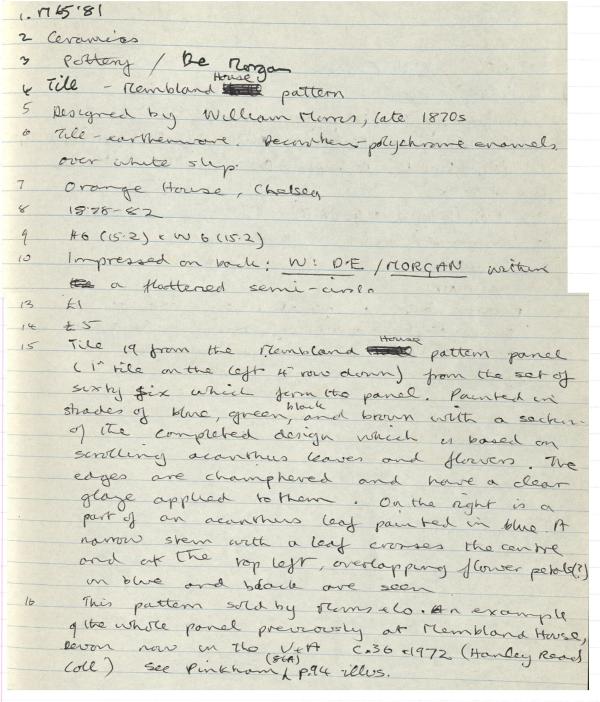 1. M65'81
2 Ceramics
3 Pottery / De Morgan
4 Tile - Membland House pattern
5 Designed by William Morris, late 1870s
6 Tile - earthenware. Decoration - polychrome enamels
over white slip.
7 Orange House, Chelsea
8 1878-82
9 H6 (15.2) x W 6 (15.2)
10 Impressed on back: W: DE / MORGAN within
a flattened semi-circle
13 £1
14 £5
15 Tile 19 from the Membland House pattern panel
(1st tile on the left 4th row down) from the set of
sixty six which form the panel. Painted in
shades of blue, green, black and brown with a section
of the completed design which is based on
scrolling acanthus leaves and flowers. The
edges are champhered and have a clear
glaze applied to them. On the right is a
part of an acanthus leaf painted in blue. A
narrow stem with a leaf crosses the centre
and at the top left, overlapping flower petals(?)
in blue and black are seen
16 This pattern sold by Morris & Co. An example
of the whole panel previously at Membland House,
Devon now in the V&A C.36-1972 (Handley Read
Coll) See Pinkham (§6A) p.94 illus.